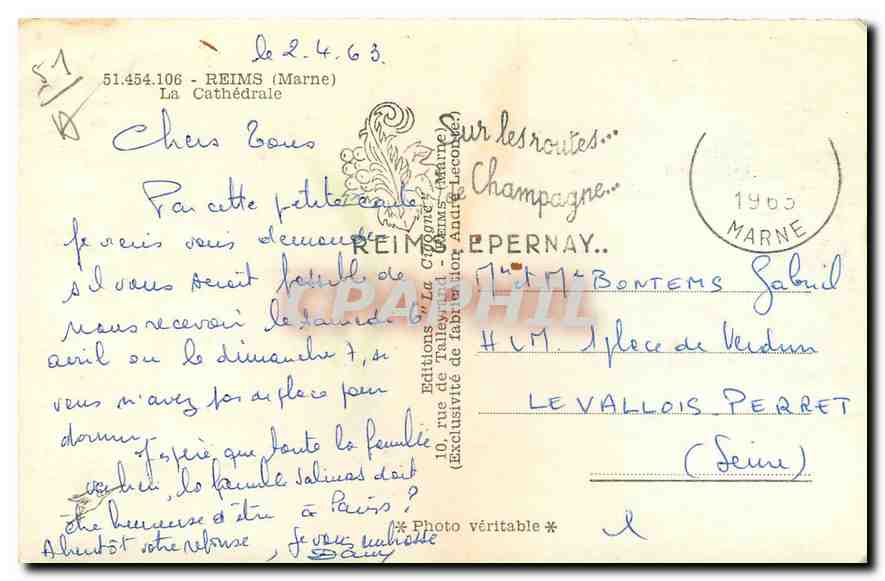 le 2.4.63
51.454.106 - REIMS (Marne)
La Cathédrale
51
Chers Tous
Par cette petite carte
je viens vous demander
s'il vous serait possible de
nous recevoir le samedi 6
avril ou le dimanche 7, si
vous n'avez pas de place pour
dormir,
J'espère que toute la famille
va bien, la famille Salinas doit
être heureuse d'être à Paris?
A bientôt votre réponse, je vous embrasse
Dany
Editions "La Cigogne"
10, rue de Talleyrand - REIMS (Marne)
(Exclusivité de fabrication André Leconte.)
Sur les routes...
de Champagne...
REIMS.. EPERNAY..
1963
MARNE
Mr et Me BONTEMS Gabriel
HLM. 1 place de Verdun
LEVALLOIS-PERRET
(Seine)
* Photo véritable *
CPAPHIL